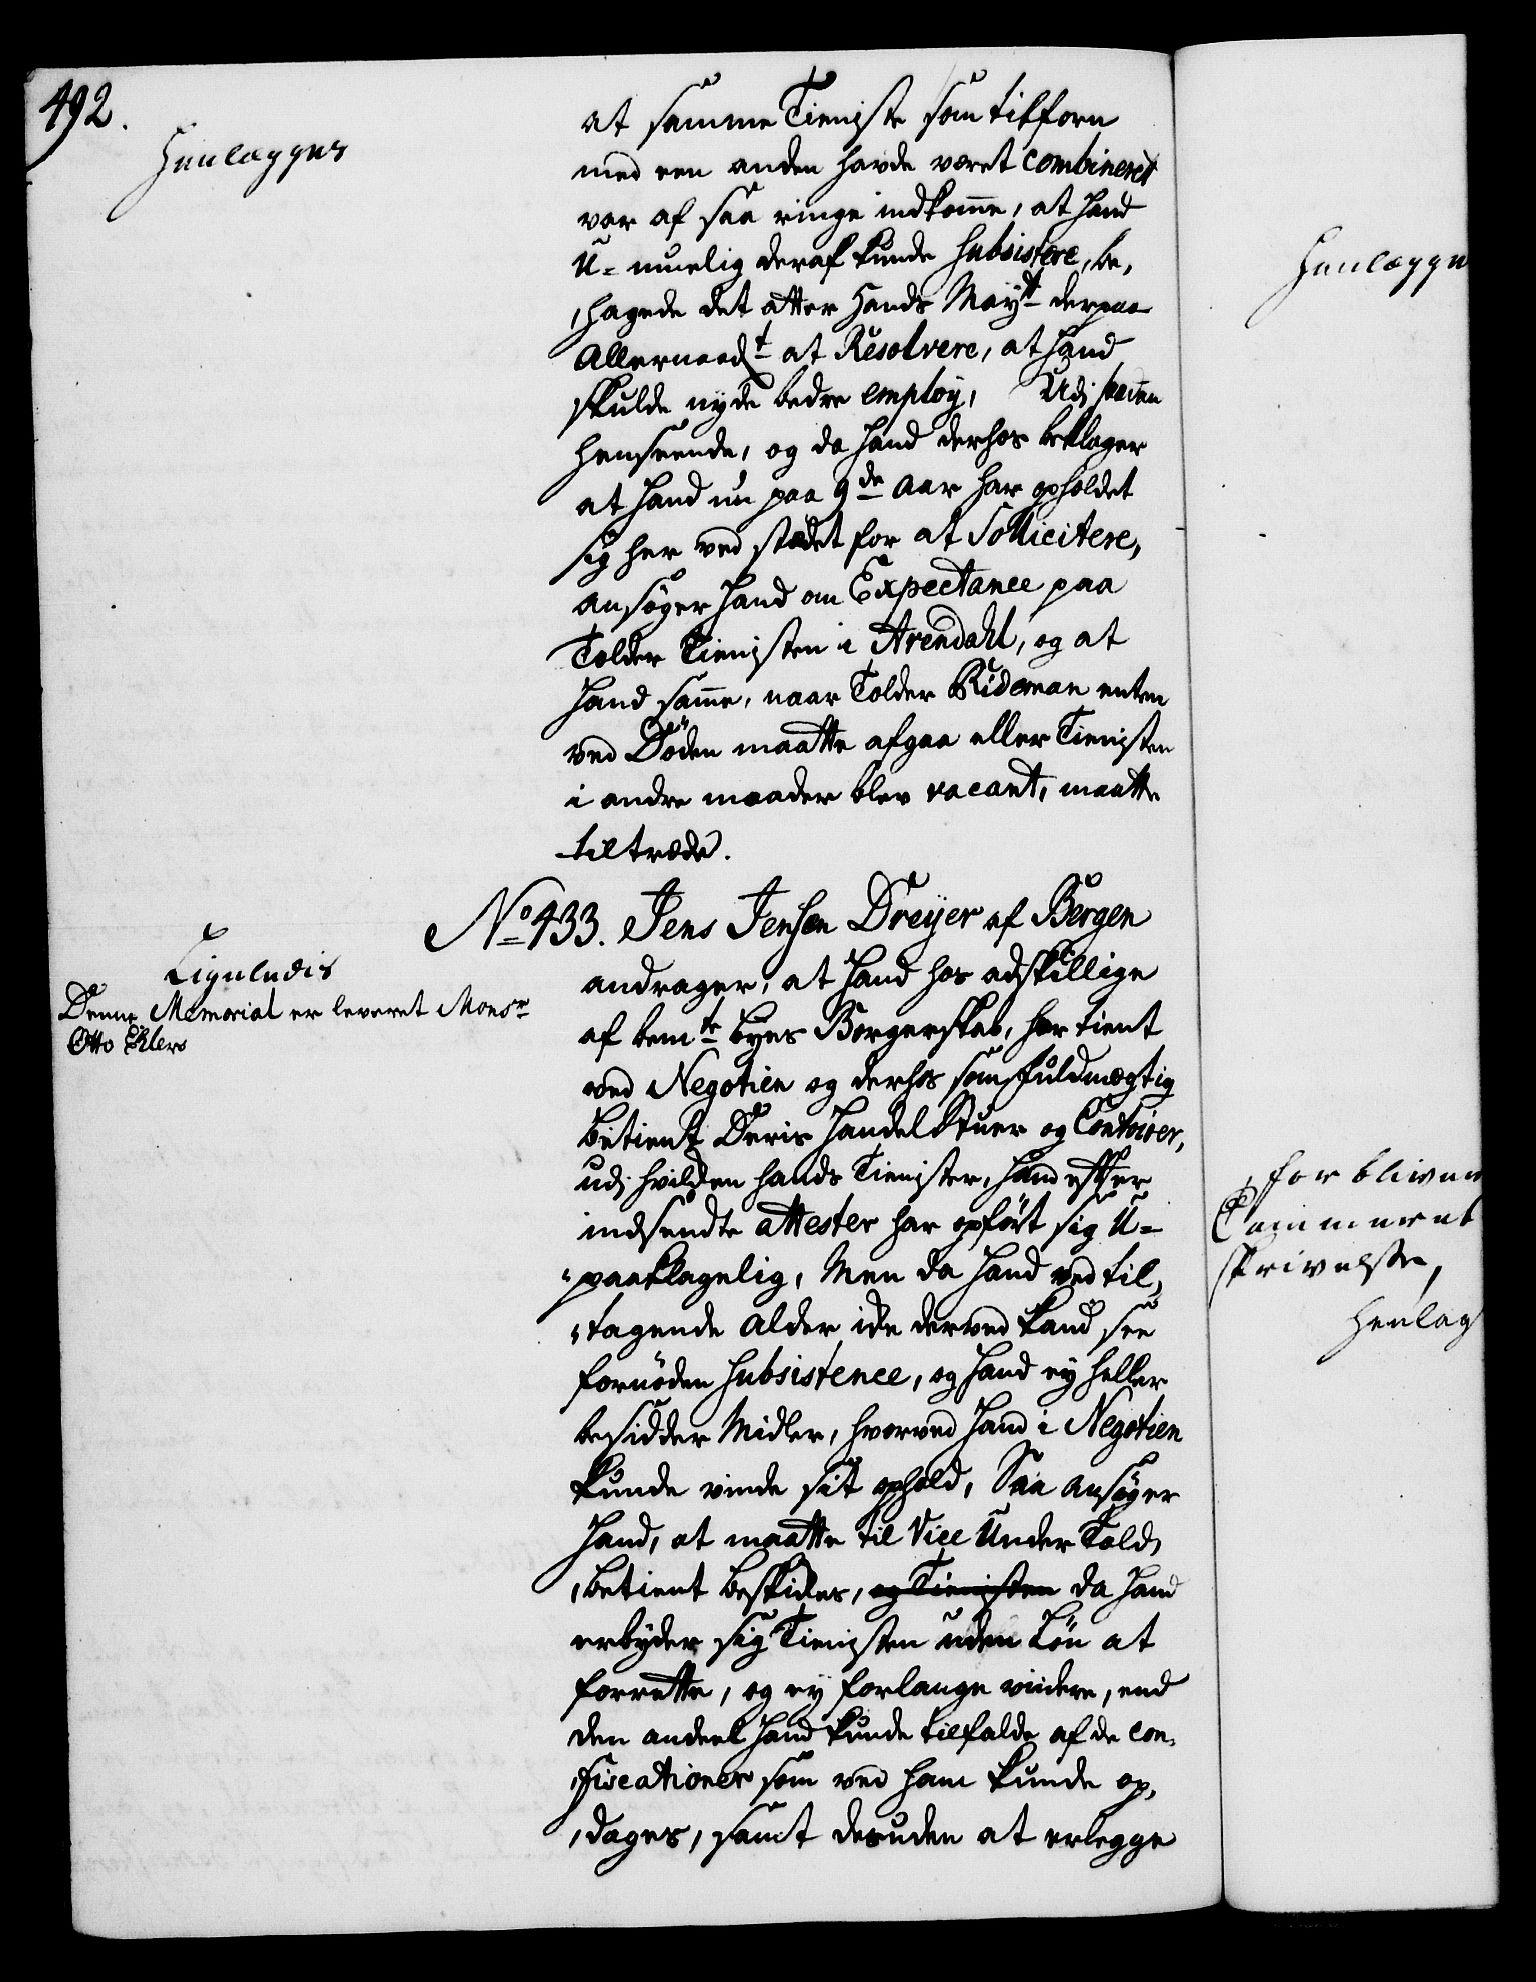 492.
Henlægges
at samme Tieniste som tilforn
med een anden havde været combineret
var af saa ringe indkomme, at hand
U-muelig deraf kunde Subsistere, be,
,hagede det atter Hands Mayt derpaa
Allernaadt at Resolvere, at hand
skulde nyde bedre employ, Udj saadan
henseende, og da hand derhos beklager
at hand nu paa 9de Aar har opholdet
sig her ved stædet for at Sollicitere,
ansøger hand om Expectance paa
Tolder Tienisten i Arendahl, og at
hand samme, naar Tolder Rideman enten
ved Döden maatte afgaa eller Tienisten
i andre maader blev vacant, maatte
tiltræde.
No 433. Jens Jensen Dreyer af Bergen
Ligeledis
Denne Memorial er leveret Monsr
Otto Ehlers
andrager, at hand hos adskillige
af bemte byes Borgerskab, har tient
ved Negotien og derhos som fuldmægtig
betient Deris Handel Stuer og Contoirer,
udj hvilken hands Tienister, hand efter
indsendte attester har opført sig U-
,paaklagelig, Men da hand ved til,
,tagende Alder icke derved kand see
fornöden Subsistence, og hand ey heller
besidder Midler, hvorved hand i Negotien
kunde vinde sit ophold, Saa ansøger
hand, at maatte til Vice Under Told,
,betient beskickes, og Tienisten da hand
erbyder sig Tienisten uden Lön at
forrette, og ey forlange videre, end
den andeel hand kunde tilfalde af de con,
,fiscationer som ved ham kunde op,
,dages, samt desuden at erlegge
Henlægge
forbliver
Cammeret
skrivelse,
Henlag